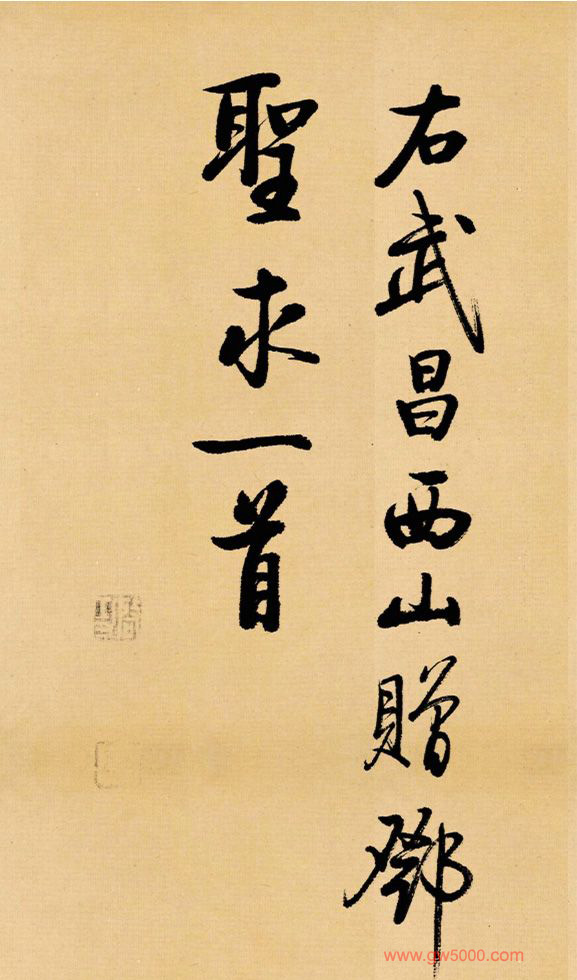 右武昌西山贈鄧
聖求一首
www.gw5000.com